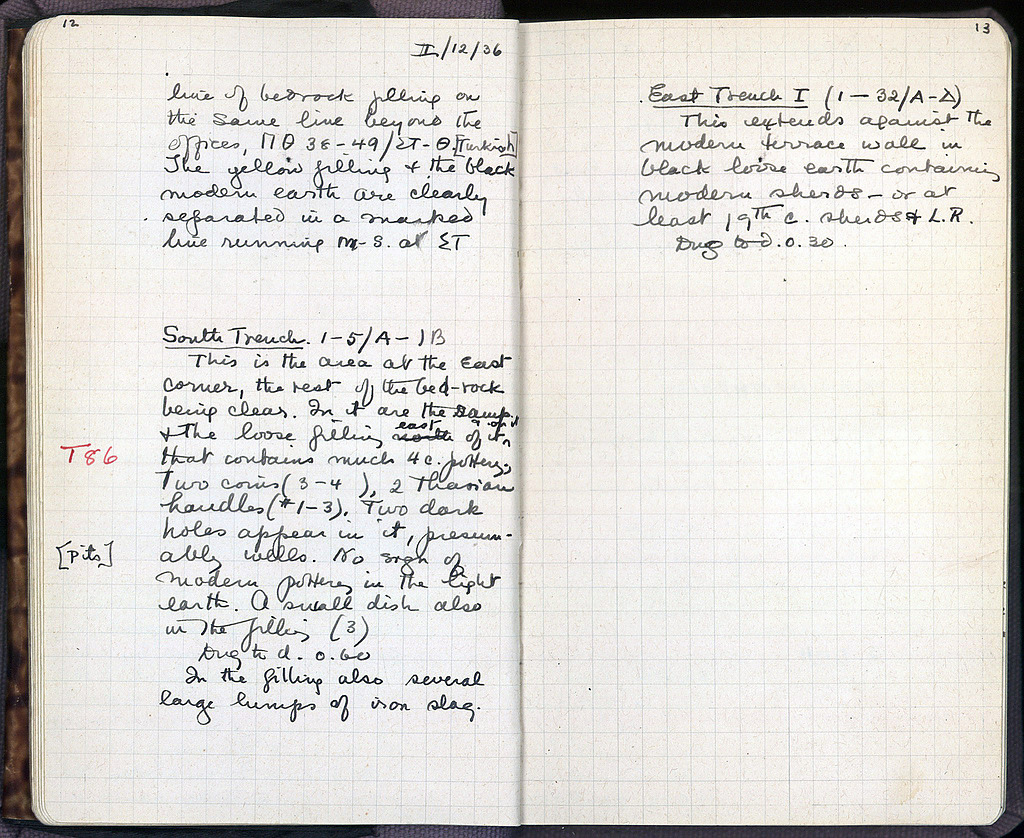 12
II/12/36
line of bedrock filling on
the same line beyond the
offices, ΠΘ 38-49/ΣΤ-Θ.[Turkish]
The yellow filling & the black
modern earth are clearly
separated in a marked
line running N-S. at ΣΤ
South Trench. 1-5/A-IB
This is the area at the East
corner, the rest of the bed-rock
being clear. In it are the dump
& the loose filling north east of it & on it
T86
that contains much 4 c. pottery,
Two coins (3-4 ), 2 Thasian
handles (#1-3). Two dark
holes appear in it, presum-
[pits]
ably wells. No sign of
modern pottery in the light
earth. A small dish also
in the filling (3)
Dug to d. 0.60
In the filling also several
large lumps of iron slag.
13
East Trench I (1-32/A-Δ)
This extends against the
modern terrace wall in
black loose earth containing
modern sherds - or at
least 19th c. sherds & L.R.
Dug to d. 0.30.